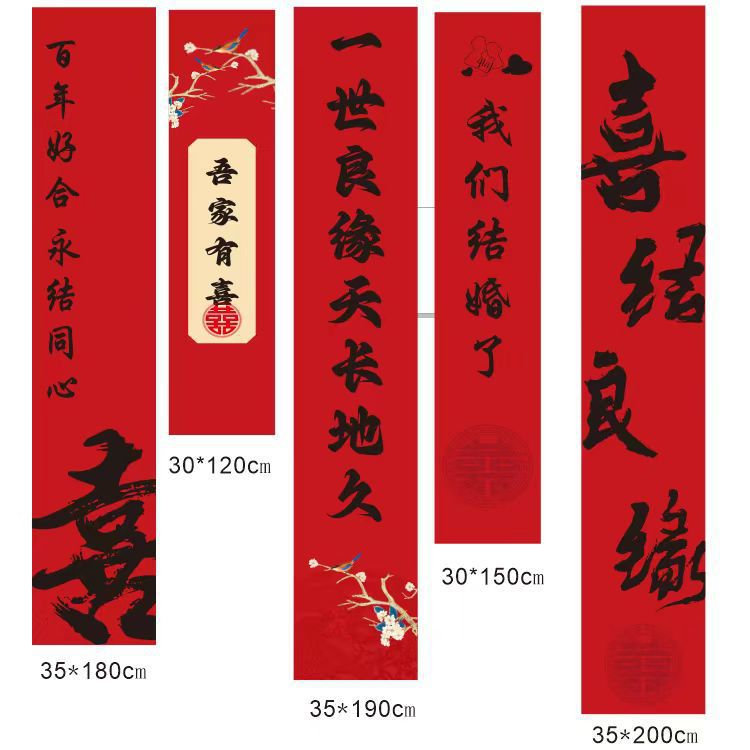 百年好合永结同心
喜
35*180cm
吾家有喜
囍
30*120cm
一世良缘天长地久
35*190cm
我们结婚了
囍
30*150cm
喜结良缘
囍
35*200cm